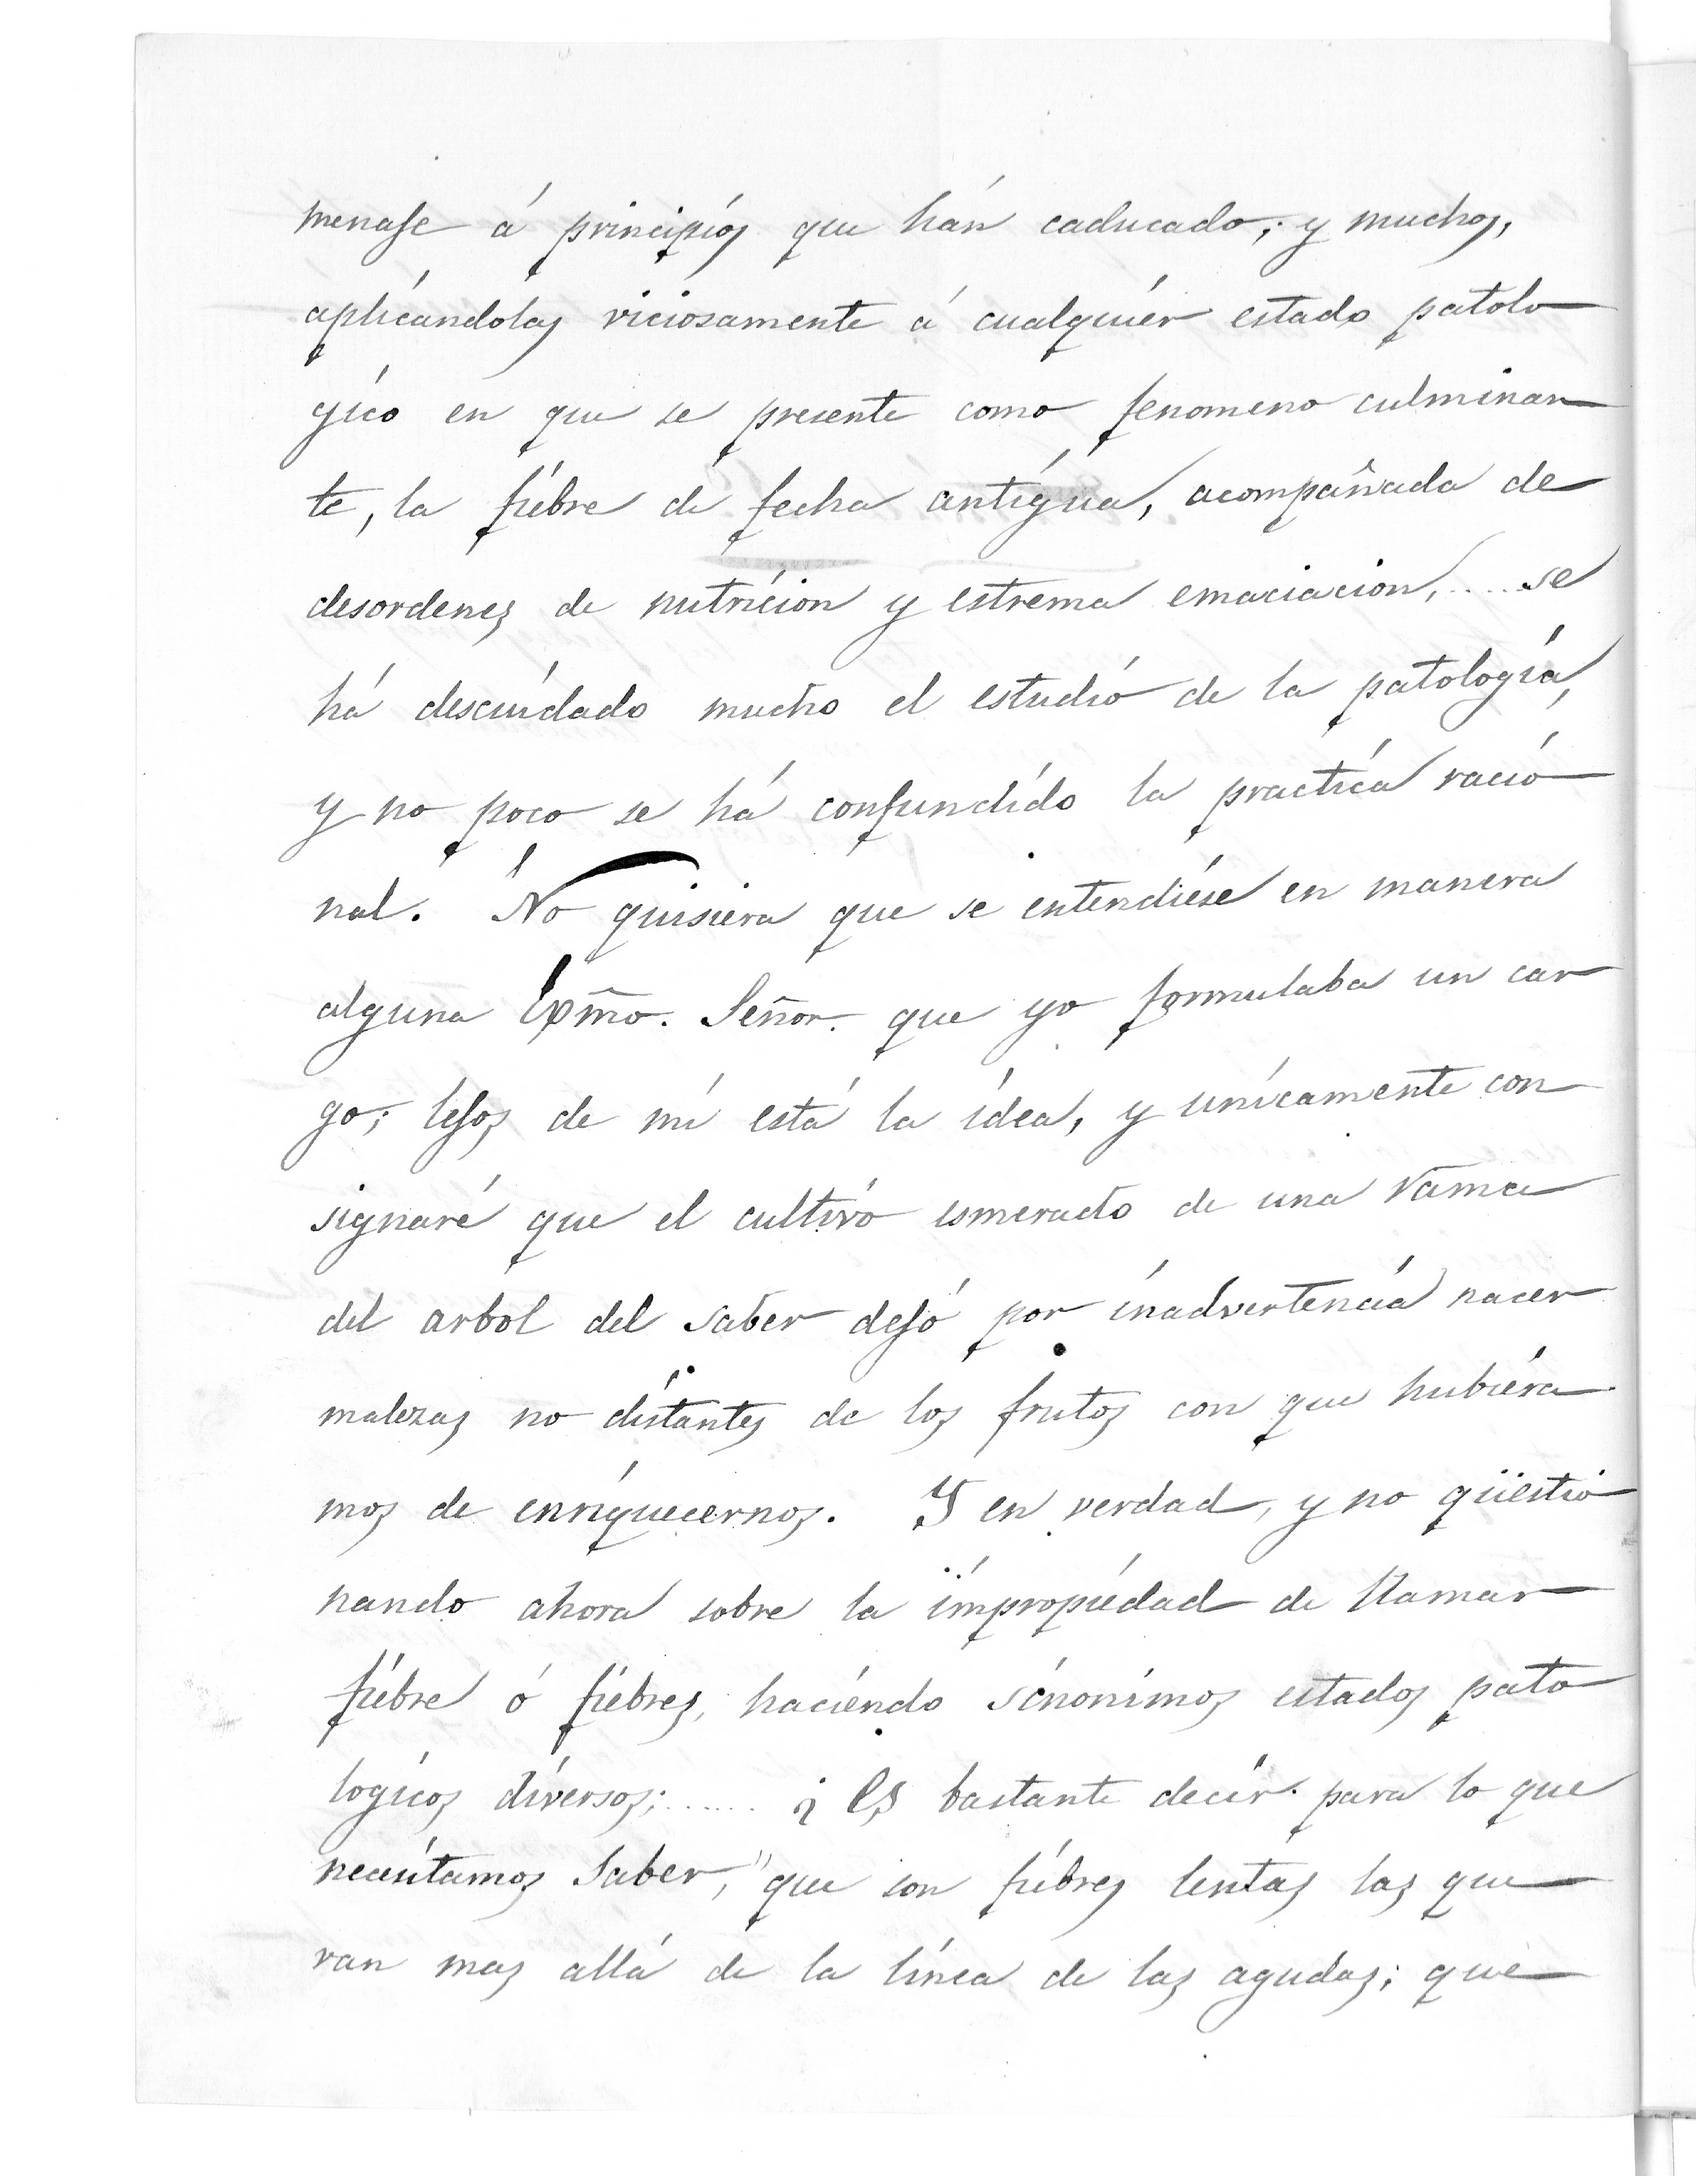 menaje á principiós que hán caducado; y muchos,
aplicándolas viciosamente á cualquiér estado patolo
gico en que se presente como fenomeno culminan
te, la fiébre de fecha antigüa, acompañada de
desordenes de nutricion y estrema emaciacion,.....se
há descuidado mucho el estudió de la patologiá,
y no poco se há confundido la practica ració
nal. No quisiera que se entendiése en manera
alguna Exp̃mo. Señor. que yo formulaba un car
go; lejos de mi está la idea, y unicamente con
signaré que el cultivó esmerado de una rama
del arbol del saber dejó por inadvertenciá nacer
malezas no distantes de los frutos con que hubiéra
mos de enriquecernos. Y en verdad, y no qüestió
nando ahora sobre la impropiédad de llamar
fiébre ó fiébres, haciéndo sinonimos estados pato
logicos diversos;...... ¿ Es bastante decir para lo que
necesitamos saber, "que son fiébres lentas las que
van mas allá de la linea de las agudas; que